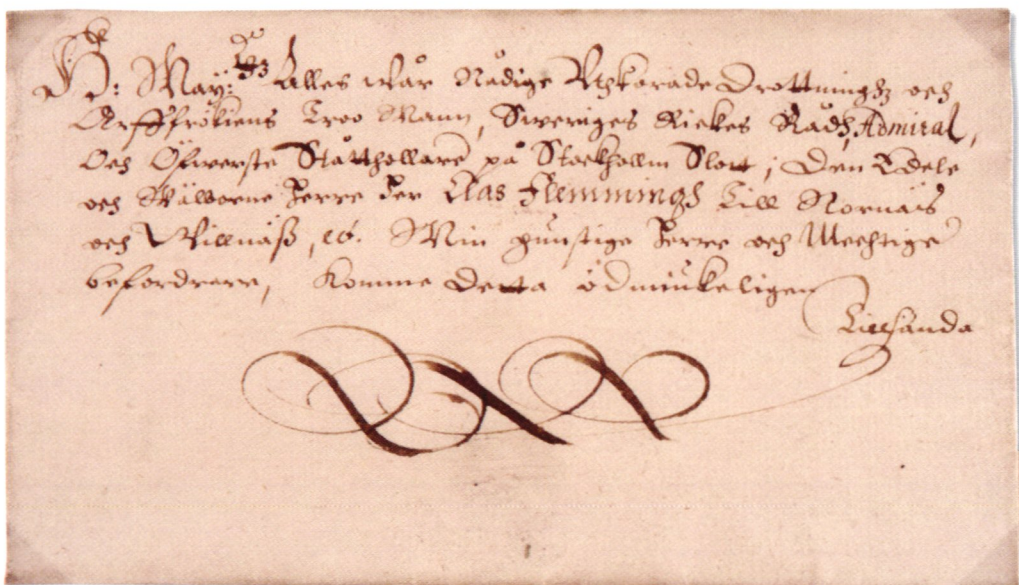 H: May:ttz Alles wår Nådige Uthkorade Drottninghz och
Arffrökens Troo Mann, Sweriges Rickes Rådh, Admiral,
Och Öfwerste Ståtthollare på Stockhollm Slott; Den Edele
och Wälborne Herre Her Clas Flemmingh Till Nornäs
och Willnäß, etc. Min gunstige Herre och Mechtige
befordrere, Komme Detta ödmiukeligen
Tillhånda